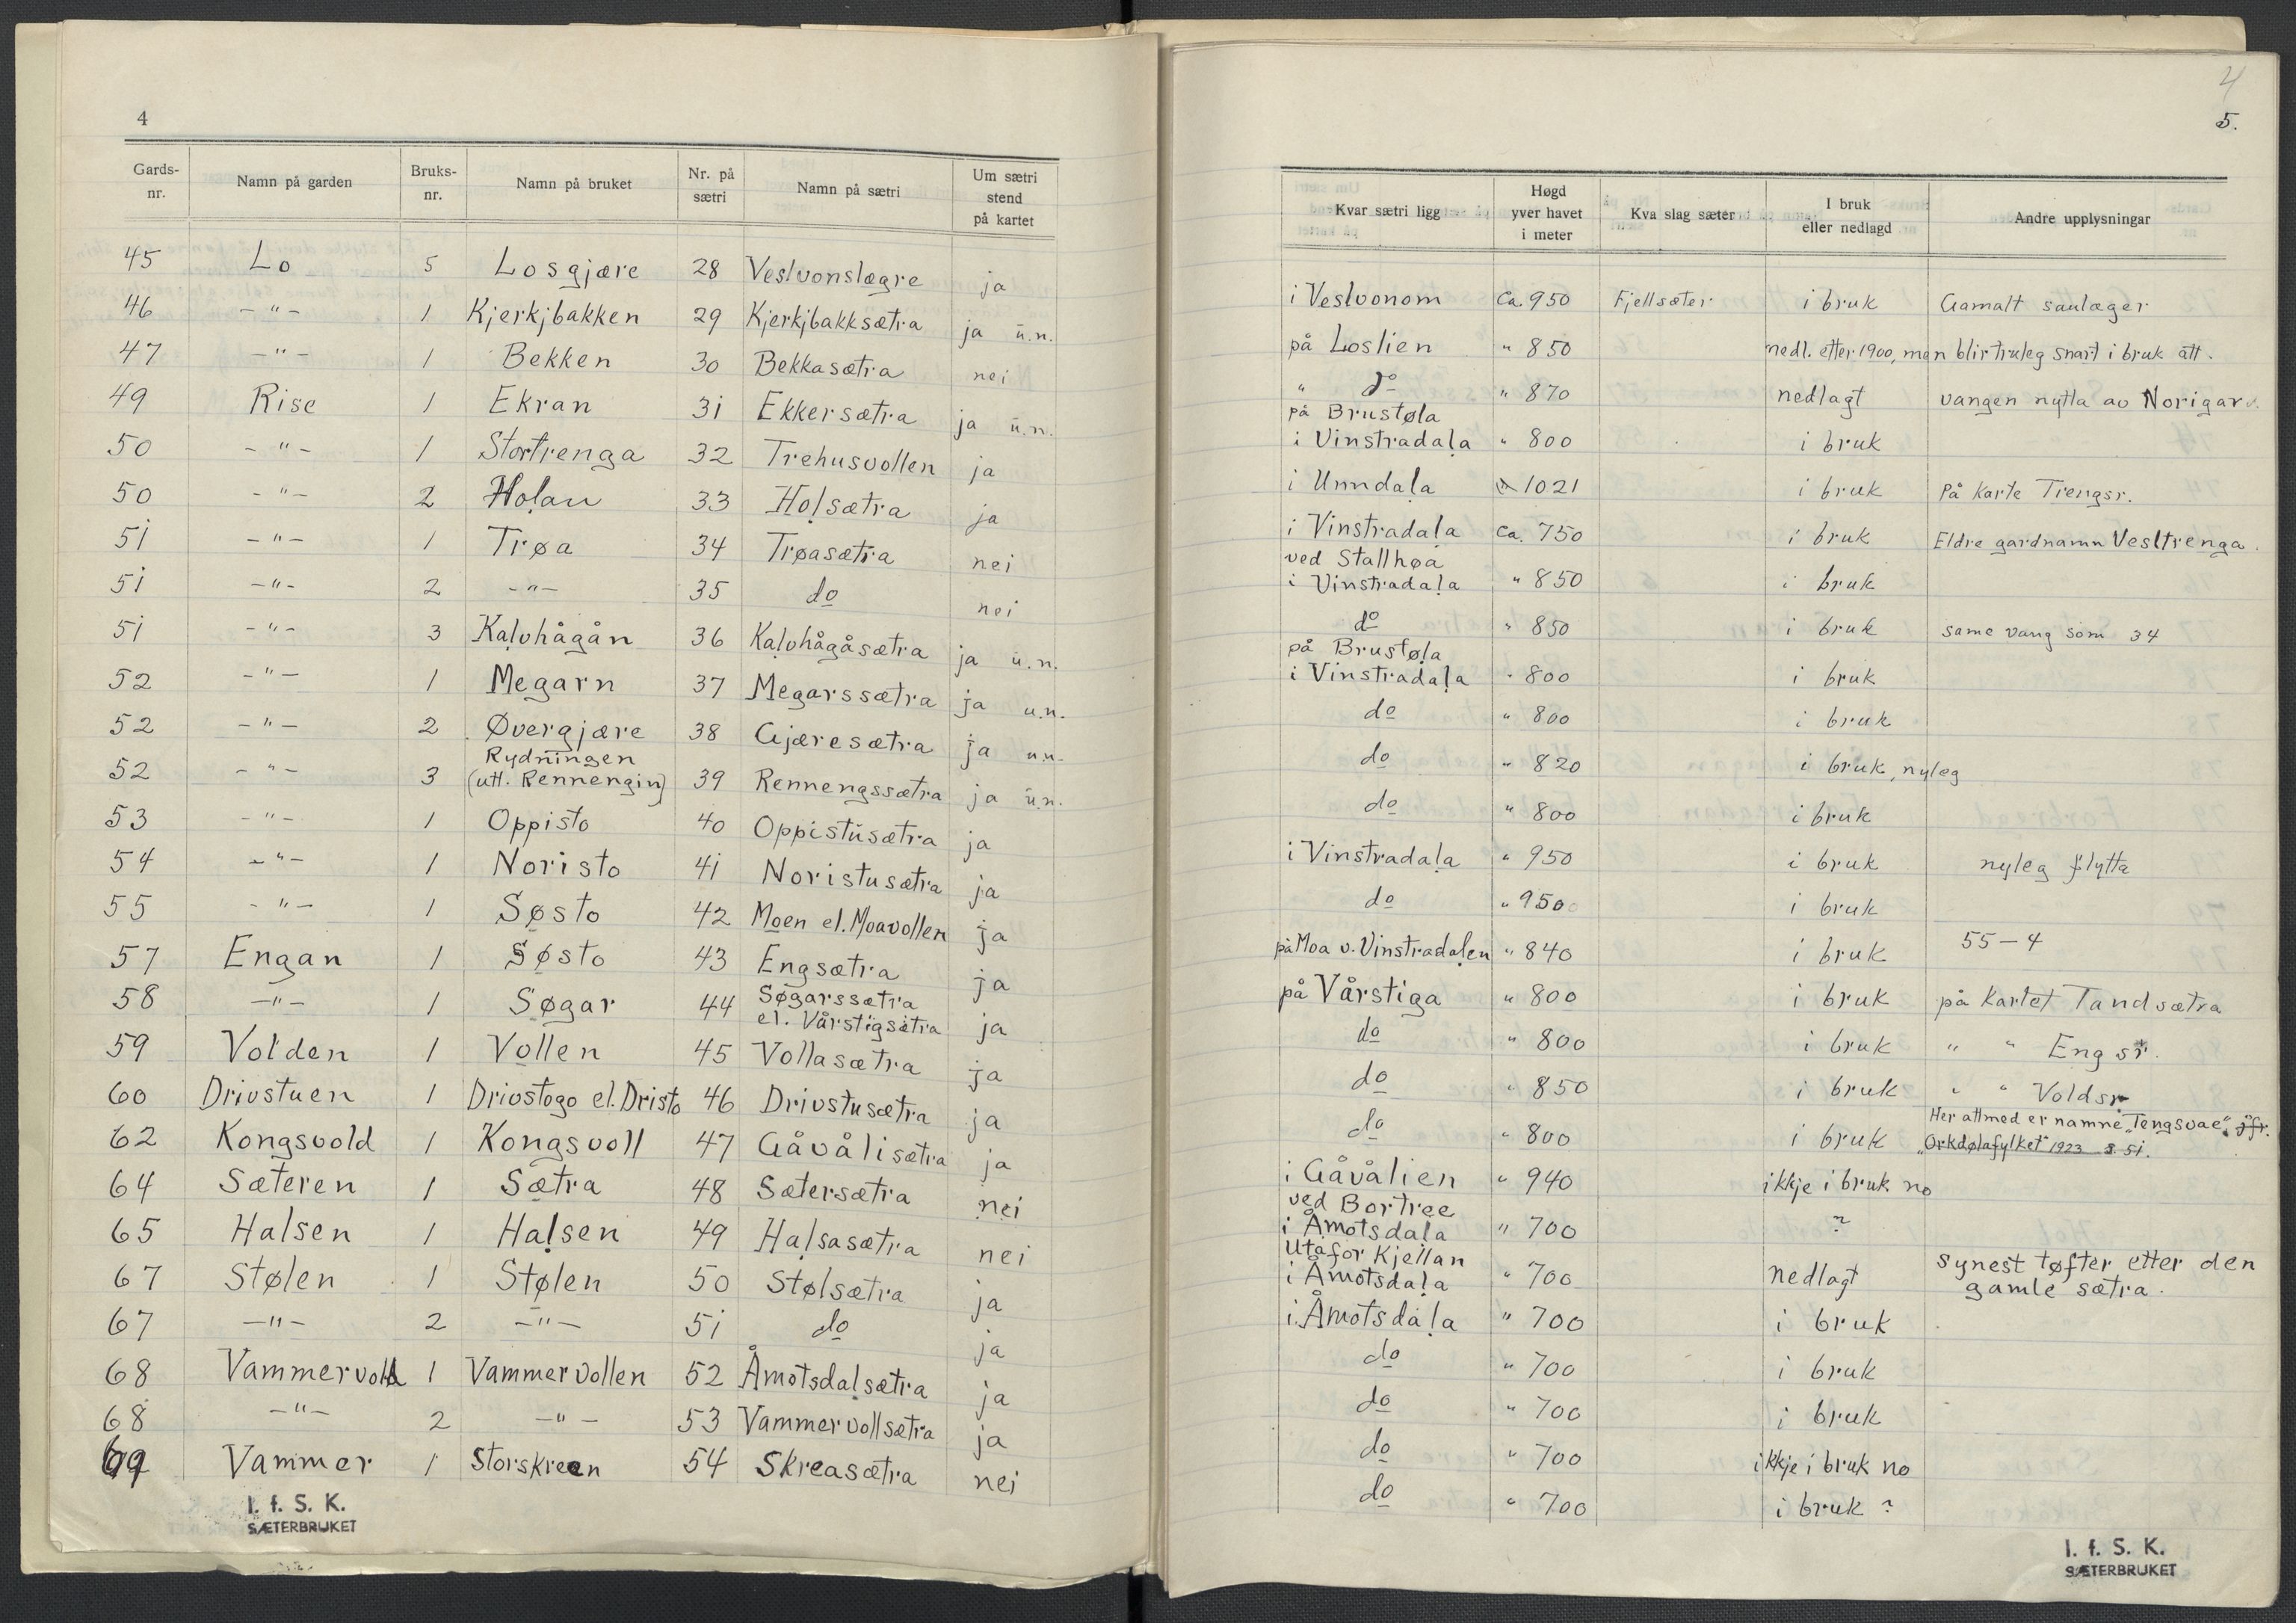 4
Gards-nr. Namn på garden Bruks-nr. Namn på bruket Nr. på sætri Namn på sætri Um sætri stend på kartet
45 Lo 5 Losgjære 28 Veslvonslægre ja
46 -"- 1 Kjerkjbakken 29 Kjerkjbakksætra ja u.n.
47 -"- 1 Bekken 30 Bekkasætra nei
49 Rise 1 Ekran 31 Ekkersætra ja u.n.
50 -"- 1 Stortrenga 32 Trehusvollen ja
50 -"- 2 Holan 33 Holsætra ja
51 -"- 1 Trøa 34 Trøasætra nei
51 -"- 2 -"- 35 do nei
51 -"- 3 Kalvhågån 36 Kalvhågåsætra ja u.n.
52 -"- 1 Megarn 37 Megarssætra ja u.n.
52 -"- 2 Øvergjære 38 Gjæresætra ja u.n.
52 -"- 3 Rydningen (utt. Rennengin) 39 Rennengssætra ja u.n.
53 -"- 1 Oppisto 40 Oppistusætra ja
54 -"- 1 Noristo 41 Noristusætra ja
55 -"- 1 Søsto 42 Moen el. Moavollen ja
57 Engan 1 Søsto 43 Engsætra ja
58 -"- 1 Søgar 44 Søgarssætra el. Vårstigsætra ja
59 Volden 1 Vollen 45 Vollasætra ja
60 Drivstuen 1 Drivstogo el. Dristo 46 Drivstusætra ja
62 Kongsvold 1 Kongsvoll 47 Gåvålisætra ja
64 Sæteren 1 Sætra 48 Sætersætra nei
65 Halsen 1 Halsen 49 Halsasætra nei
67 Stølen 1 Stølen 50 Stølsætra ja
67 -"- 2 -"- 51 do ja
68 Vammervold 1 Vammervollen 52 Åmotsdalsætra ja
68 -"- 2 -"- 53 Vammervollsætra ja
69 Vammer 1 Storskreen 54 Skreasætra nei
I. f. S. K.
SÆTERBRUKET
4
5.
Kvar sætri ligg Høgd yver havet i meter Kva slag sæter I bruk eller nedlagd Andre upplysningar
i Veslvonom Ca. 950 Fjellsæter i bruk Gamalt saulæger
på Loslien " 850 nedl. etter 1900, men blir truleg snart i bruk att.
" do " 870 nedlagt vangen nytta av Norigard.
på Brustøla
i Vinstradala " 800 i bruk
i Unndala " 1021 i bruk På Karte Trengsr.
i Vinstradala Ca. 750 i bruk Eldre gardnamn Vesltrenga.
ved Stallhøa
i Vinstradala " 850 i bruk
do " 850 i bruk same vang som 34
på Brustøla
i Vinstradala " 800 i bruk
do " 800 i bruk
do " 820 i bruk, nyleg
do " 800 i bruk
i Vinstradala " 950 i bruk nyleg flytta
do " 950 i bruk
på Moa v. Vinstradalen " 840 i bruk 55-4
på Vårstiga " 800 i bruk på Kartet Tandsætra
do " 800 i bruk " " Engsr.
do " 850 i bruk " " Voldsr
do " 800 i bruk Her attmed er namne „Tengsvae", jfr. „Orkdølafylket" 1923 s. 51.
i Gåvålien " 940 ikkje i bruk no
ved Bortree
i Åmotsdala " 700 ?
Utafor Kjellan
i Åmotsdala " 700 nedlagt Synest tøfter etter den gamle sætra.
i Åmotsdala " 700 i bruk
do " 700 i bruk
do " 700 i bruk
do " 700 ikkje i bruk no
do " 700 i bruk ?
I. f. S. K.
SÆTERBRUKET